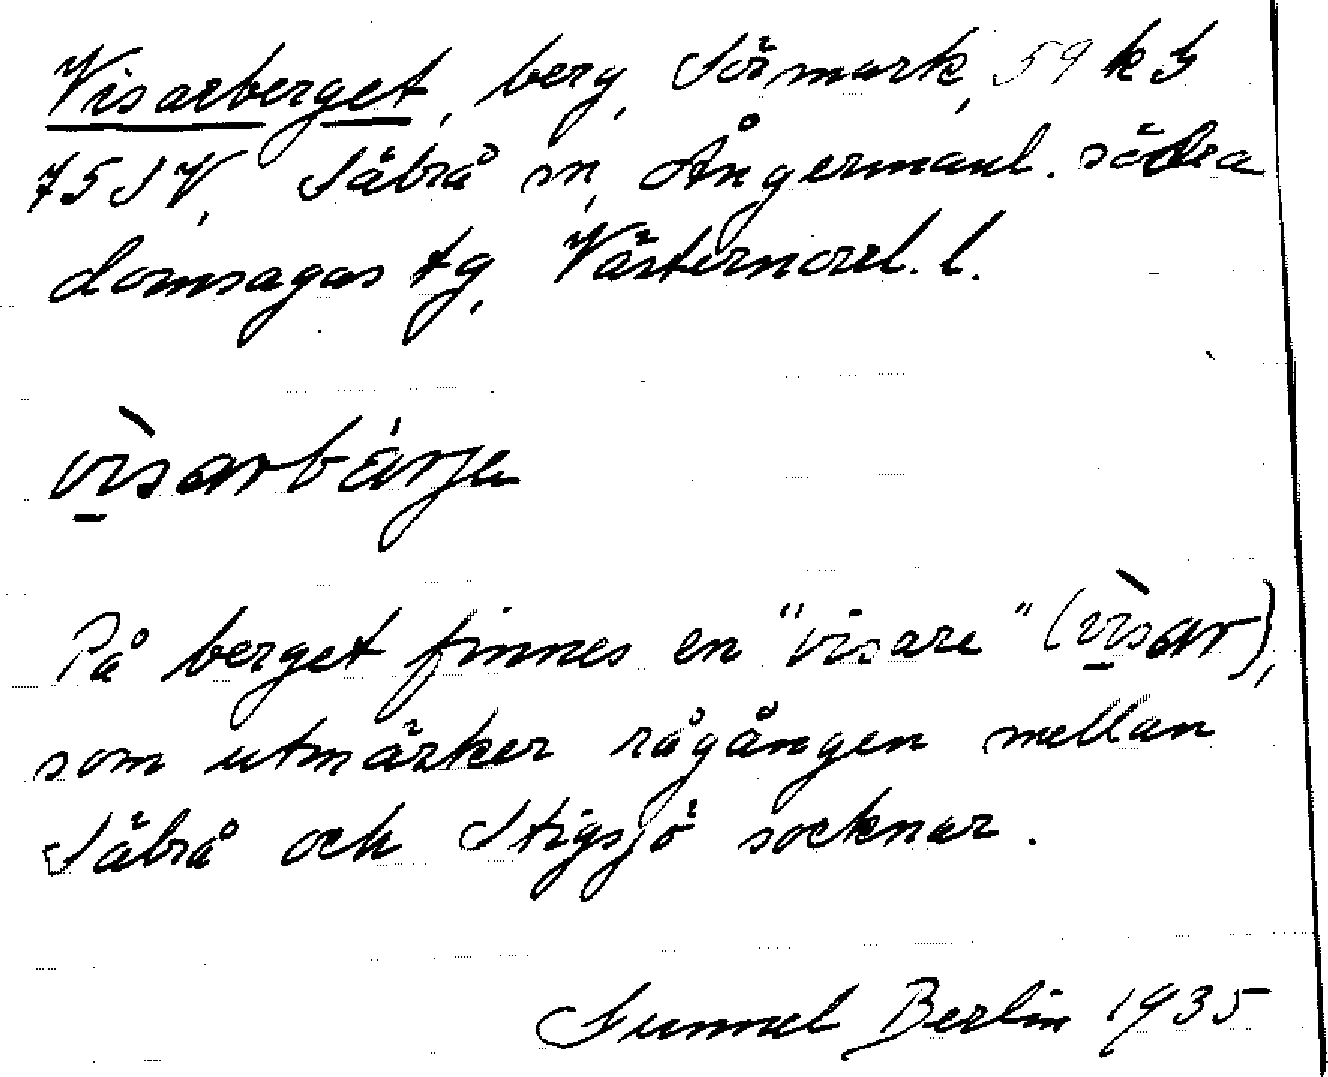 Visarberget, berg, Sörmark, 59 k3
75 SV, Säbrå sn, Ångermanl. södra
domsagas tg, Västernorrl. l.
vìsarbärje
På berget finnes en "visare" (vìsar),
som utmärker rågången mellan
Säbrå och Stigsjö socknar.
Gunnel Berlin 1935